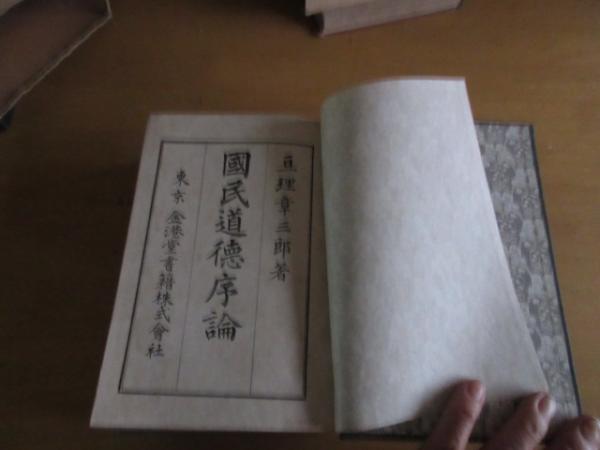 亘理章三郎著
國民道德序論
東京 金港堂書籍株式會社